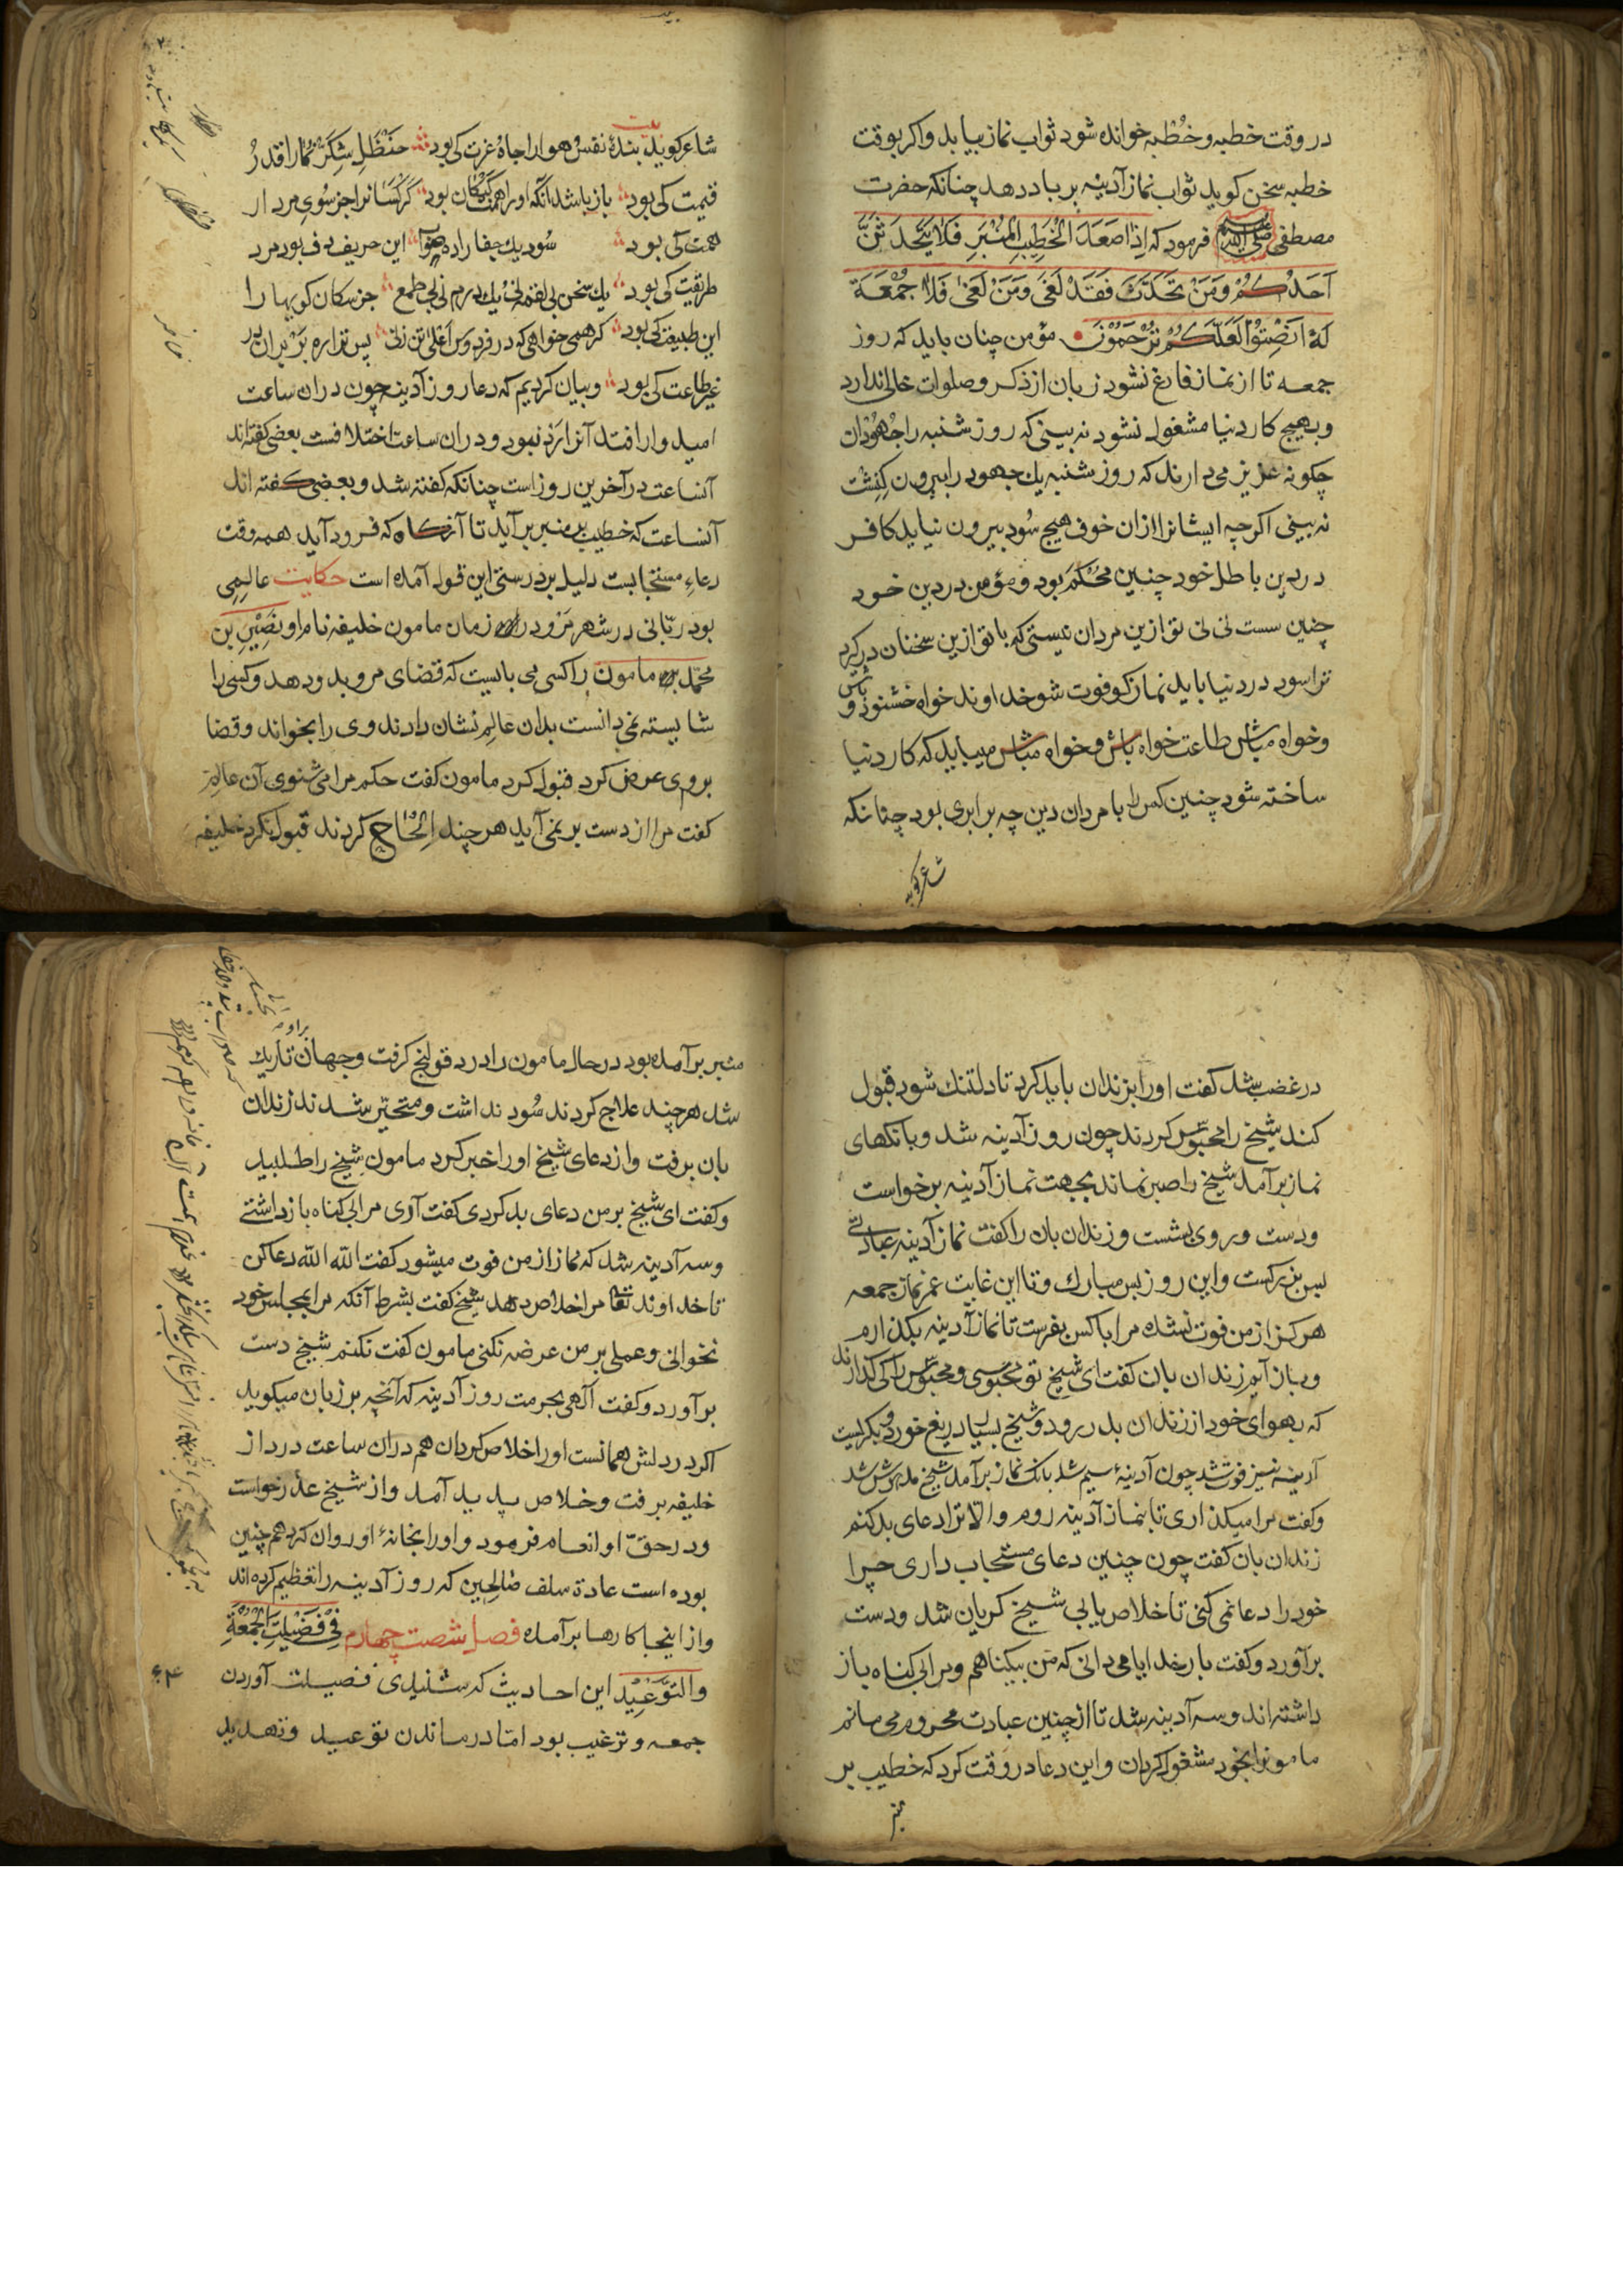 در وقت خطبه و خُطبه خوانده شود ثواب نماز بیابد واکر بوقت
خطبه سخن کوید ثواب نماز آدینه بر باد دهد چنانکه حضرت
مصطفی صلی الله علیه وسلم فرمود که اِذا صَعَدَ الخَطِیبُ المِنْبَرِ فَلا یَتَحَدَثَنَّ
اَحَدُکُمْ وَمَنْ تَحَدَّثَ فَقَدْ لَغَیٰ وَمَنْ لَغَیٰ فَلا جُمْعَةَ
لَهُ اَنْصِتُوْا لَعَلَّکُمْ تُرْحَمُوْنَ مؤمن چنان باید که روز
جمعه تا از نماز فارغ نشود زبان از ذکر و صلوات خالی ندارد
و بهیچ کار دنیا مشغول نشود نه بینی که روز شنبه را جُهُودان
چکونه عزیز می دارند که روز شنبه یك جهود را بیرون کنشت
نه بینی اکرچه ایشانرا ازان خوف هیچ سُود بیرون نیاید کافر
در دین باطل خود چنین محکم بود و مؤمن در دین خود
چنین سست نی نی تو ازین مردان نیستی که با تو ازین سخنان در کیرد
ترا سود در دنیا باید نماز کو فوت شو خداوند خواه خشنود باش و
وخواه مباش طاعت خواه باش وخواه مباش میباید که کار دنیا
ساخته شود چنین کس را با مردان دین چه برابری بود چنانکه
شاعر کوید
شاعر کوید بیت بندۀ نفس و هوا را جاه و عزت کی بود حَنْظَلِ شکر نما را قدر و
قیمت کی بود باز باشد آنکه او را همت کان بود کَرکسانرا جز سُویِ مردار
همت کی بود سُود یك جفا را ده جواب این حریف دف بود مرد
طریقت کی بود یك سخن بی لقمه نی یك درم نی بی طمع جز سکان کویها را
این طبیعت کی بود کر همی خواهی که در فردوس اَعْلیٰ تن زنی پس ترا ره بَر بران در
غیر طاعت کی بود و بیان کردیم که دعا روز آدینه چون دران ساعت
امیدوار افتد آنرا رَد نبود ودران ساعت اختلافست بعضی کفته اند
آنساعت در آخرین روز است چنانکه کفته شد و بعضی کفته اند
آنساعت که خطیب بر منبر بر آید تا آنکاه که فرود آید همه وقت
دعاءِ مستجابست دلیل بر درستی این قول آمده است حکایت عالمِی
بود ربّانی در شهر مَرو در زمان مامون خلیفه نام او نصیر بن
محمد مامون را کسی می بایست که قضای مرو بدو دهد وکسی را
شایسته نمی دانست بدان عالِم نشان دادند وی را بخواند وقضا
بروی عرض کرد قبول نکرد مامون کفت حکم مرا می شنوی آن عالِم
کفت مرا از دست بر نمی آید هر چند اِلْحاح کردند قبول نکرد خلیفه
در غضب شد کفت او را بزندان باید کرد تا دلتنك شود قبول
کند شیخ را محبوس کردند چون روز آدینه شد و بانکهای
نماز بر آمد شیخ را صبر نماند بجهت نماز آدینه برخواست
ودست و روی بشست و زندان بان را کفت نماز آدینه عبادتی
بس بزرکست واین روز بس مبارك وتا این غایت عمر نماز جمعه
هرکز از من فوت نشده مرا با کس بفرست تا نماز آدینه بکذارم
و باز آیم زندان بان کفت ای شیخ تو محبوسی و محبوس را کی کذارند
که بهوای خود از زندان بدر رود و شیخ بسیار دریغ خورد و بکریست
آدینه نیز فوت شد چون آدینۀ سیم شد بانك نماز بر آمد شیخ مدهوش شد
وکفت مرا میکذاری تا بنماز آدینه روم والّا ترا دعای بد کنم
زندان بان کفت چون چنین دعای مستجاب داری چرا
خود را دعا نمی کنی تا خلاص یابی شیخ کریان شد ودست
برآورد وکفت بار خدایا می دانی که من بیکناهم ومرا بی کناه باز
داشته اند وسه آدینه شد تا از چنین عبادت محروم می مانم
مامونرا بخود مشغول کردان واین دعا در وقت کرد که خطیب بر
منبر
منبر برآمده بود در حال مامون را درد قولنج کرفت وجهان تاریك
شد هر چند علاج کردند سُود نداشت و متحیّر شدند زندان
بان برفت واز دعای شیخ او را خبر کرد مامون شیخ را طلبید
وکفت ای شیخ بر من دعای بد کردی کفت آری مرا بی کناه باز داشتی
وسه آدینه شد که نماز از من فوت میشود کفت الله الله دعا کن
تا خداوند تعالی مرا خلاص دهد شیخ کفت بشرط آنکه مرا بمجلس خود
نخوانی وعملی بر من عرضه نکنی مامون کفت نکنم شیخ دست
برآورد وکفت آلهی بحرمت روز آدینه که آنچه بر زبان میکوید
اکر در دلش همانست او را خلاص کردان هم دران ساعت درد از
خلیفه برفت وخلاص پدید آمد واز شیخ عذر خواست
ودر حقّ او انعام فرمود و او را بخانۀ او روان کرد هم چنین
بوده است عادة سلف صٰالِحین که روز آدینه را تعظیم کرده اند
واز اینجا کارها برآمده فصل شصت چهارم فِی فَضیلَتِ الْجُمْعَةِ
والتَّوْعِیْد این احادیث که شنیدی فضیلت آوردن
۶۴
جمعه و ترغیب بود امّا در ماندن توعید وتهدید